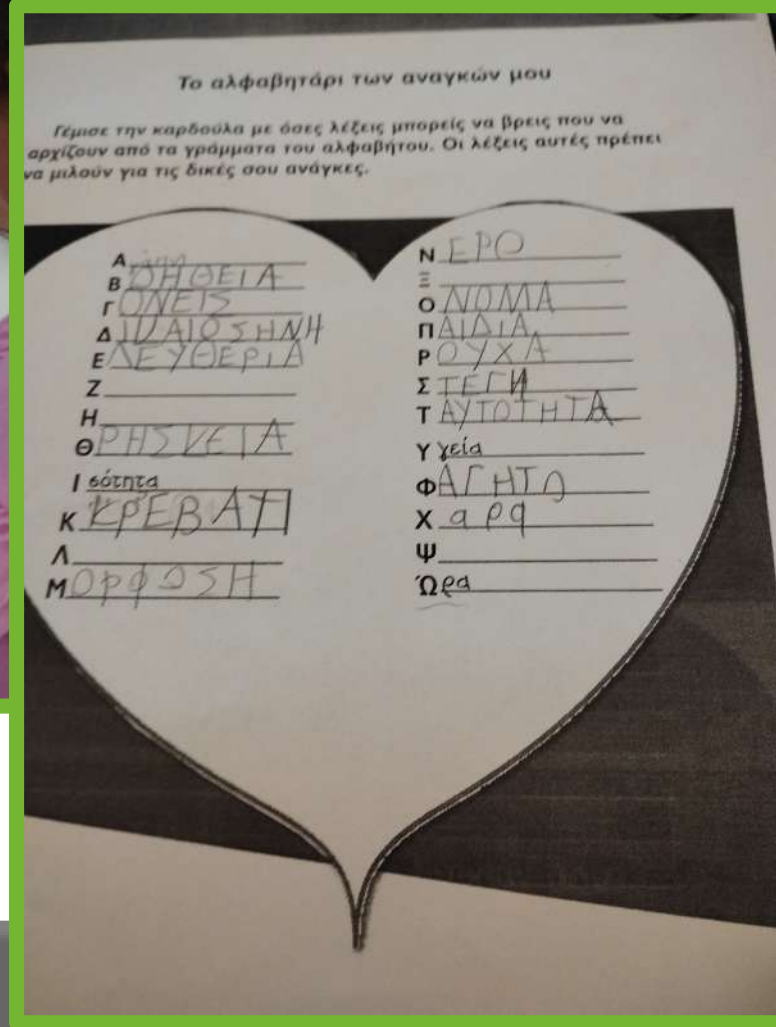 Το αλφαβητάρι των αναγκών μου
Γέμισε την καρδούλα με όσες λέξεις μπορείς να βρεις που να
αρχίζουν από τα γράμματα του αλφαβήτου. Οι λέξεις αυτές πρέπει
να μιλούν για τις δικές σου ανάγκες.
Α
ΒΟΗΘΕΙΑ
ΓΟΝΕΙΣ
ΔΙΚΑΙΟΣΗΝΗ
ΕΛΕΥΘΕΡΙΑ
Ζ
Η
ΘΡΗΣΚΕΙΑ
Ισότητα
Κ ΚΡΕΒΑΤΙ
Λ
ΜΟΡΦΩΣΗ
ΝΕΡΟ
Ξ
ΟΝΟΜΑ
ΠΑΙΔΙΑ
ΡΟΥΧΑ
ΣΤΕΓΗ
ΤΑΥΤΟΤΗΤΑ
Υγεία
ΦΑΓΗΤΟ
Χαρα
Ψ
Ώρα